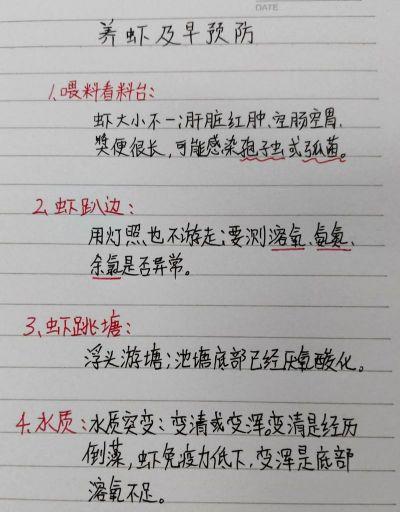 DATE
养虾及早预防
1、喂料看料台:
虾大小不一;肝脏红肿、空肠空胃、
粪便很长,可能感染孢子虫或弧菌。
2、虾趴边:
用灯照也不游走;要测溶氧、氨氮、
余氯是否异常。
3、虾跳塘:
浮头游塘;池塘底部已经厌氧酸化。
4、水质:水质突变:变清或变浑。变清是经历
倒藻,虾免疫力低下,变浑是底部
溶氧不足。